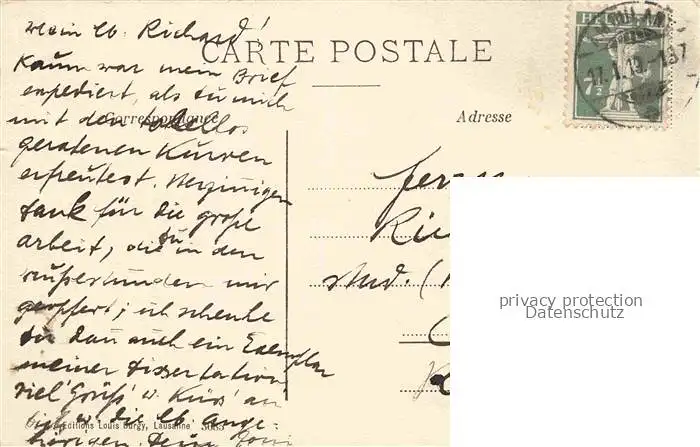 Mein lb. Richard!
CARTE POSTALE
Kaum war mein Brief
expediert, als du mich
mit den tadellos
geratenen Kurven
erfreutest. Herzinnigen
Dank für die große
Arbeit, die du in den
Mußestunden mir
geopfert; ich schenke
dir dann auch ein Exemplar
meiner Dissertation
viel Grüß' u. Küss' an
dich u. die lb. Ange-
hörigen. Dein
Correspondance
Adresse
HE
7½
17.I.13.-
Herrn
stud. (
privacy protection
Datenschutz
Editions Louis Burgy, Lausanne